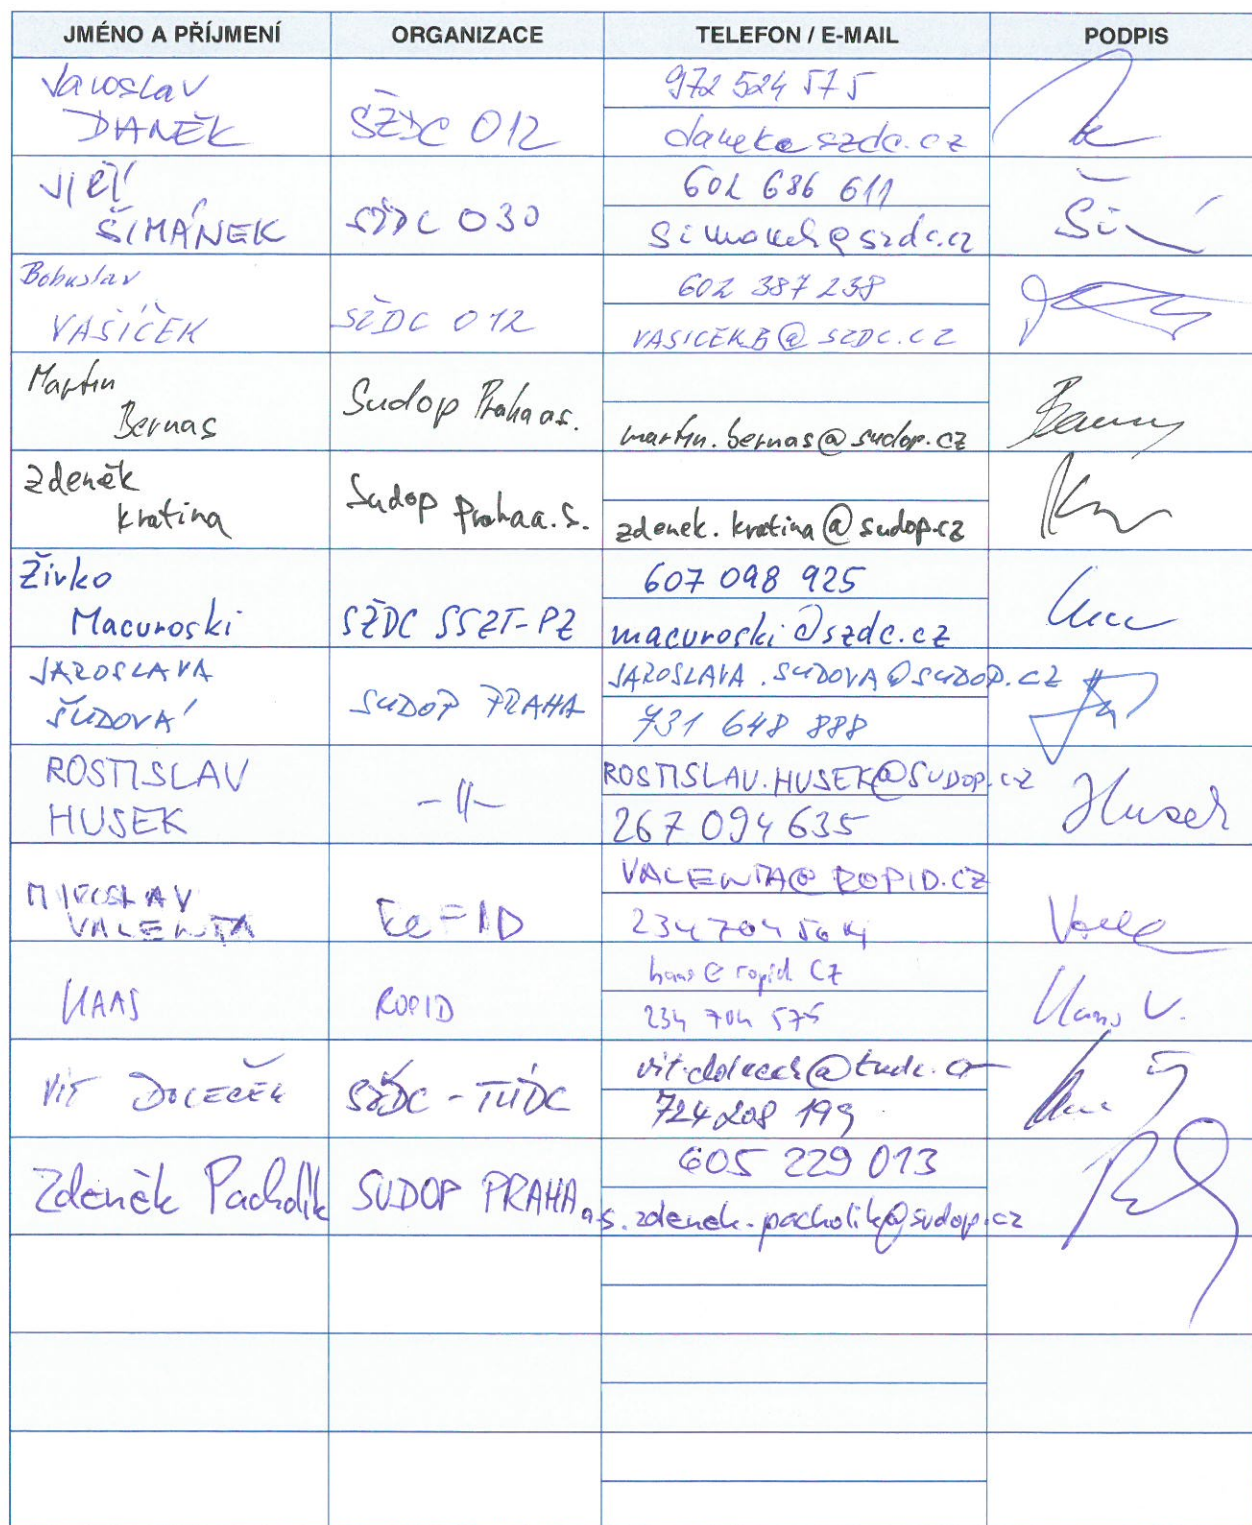 JMÉNO A PŘÍJMENÍ ORGANIZACE TELEFON / E-MAIL PODPIS
Jaroslav
DANĚK
SŽDC O12
972 524 575
danek@szdc.cz
Jiří
ŠIMÁNEK
SŽDC O30
602 686 611
simanek@szdc.cz
Bohuslav
VAŠÍČEK
SŽDC O12
602 387 238
VASICEKB@SZDC.CZ
Martin
Bernas
Sudop Praha a.s.
martin.bernas@sudop.cz
Zdeněk
Kratina
Sudop Praha a.s.
zdenek.kratina@sudop.cz
Živko
Macuroski
SŽDC SSZT-PZ
607 098 925
macuroski@szdc.cz
JAROSLAVA
ŠUDOVÁ
SUDOP PRAHA
JAROSLAVA.SUDOVA@SUDOP.CZ
731 648 888
ROSTISLAV
HUSEK
-||-
ROSTISLAV.HUSEK@SUDOP.CZ
267 094 635
Husek
MIROSLAV
VALENTA
VALENTA@ROPID.CZ
HAAS
ROPID
haas@ropid.cz
234 704 575
Haas V.
VÍT DOLEČEK
SŽDC - TÚDC
724 208 199
Zdeněk Pacholík
SUDOP PRAHA a.s.
605 229 013
zdenek.pacholik@sudop.cz